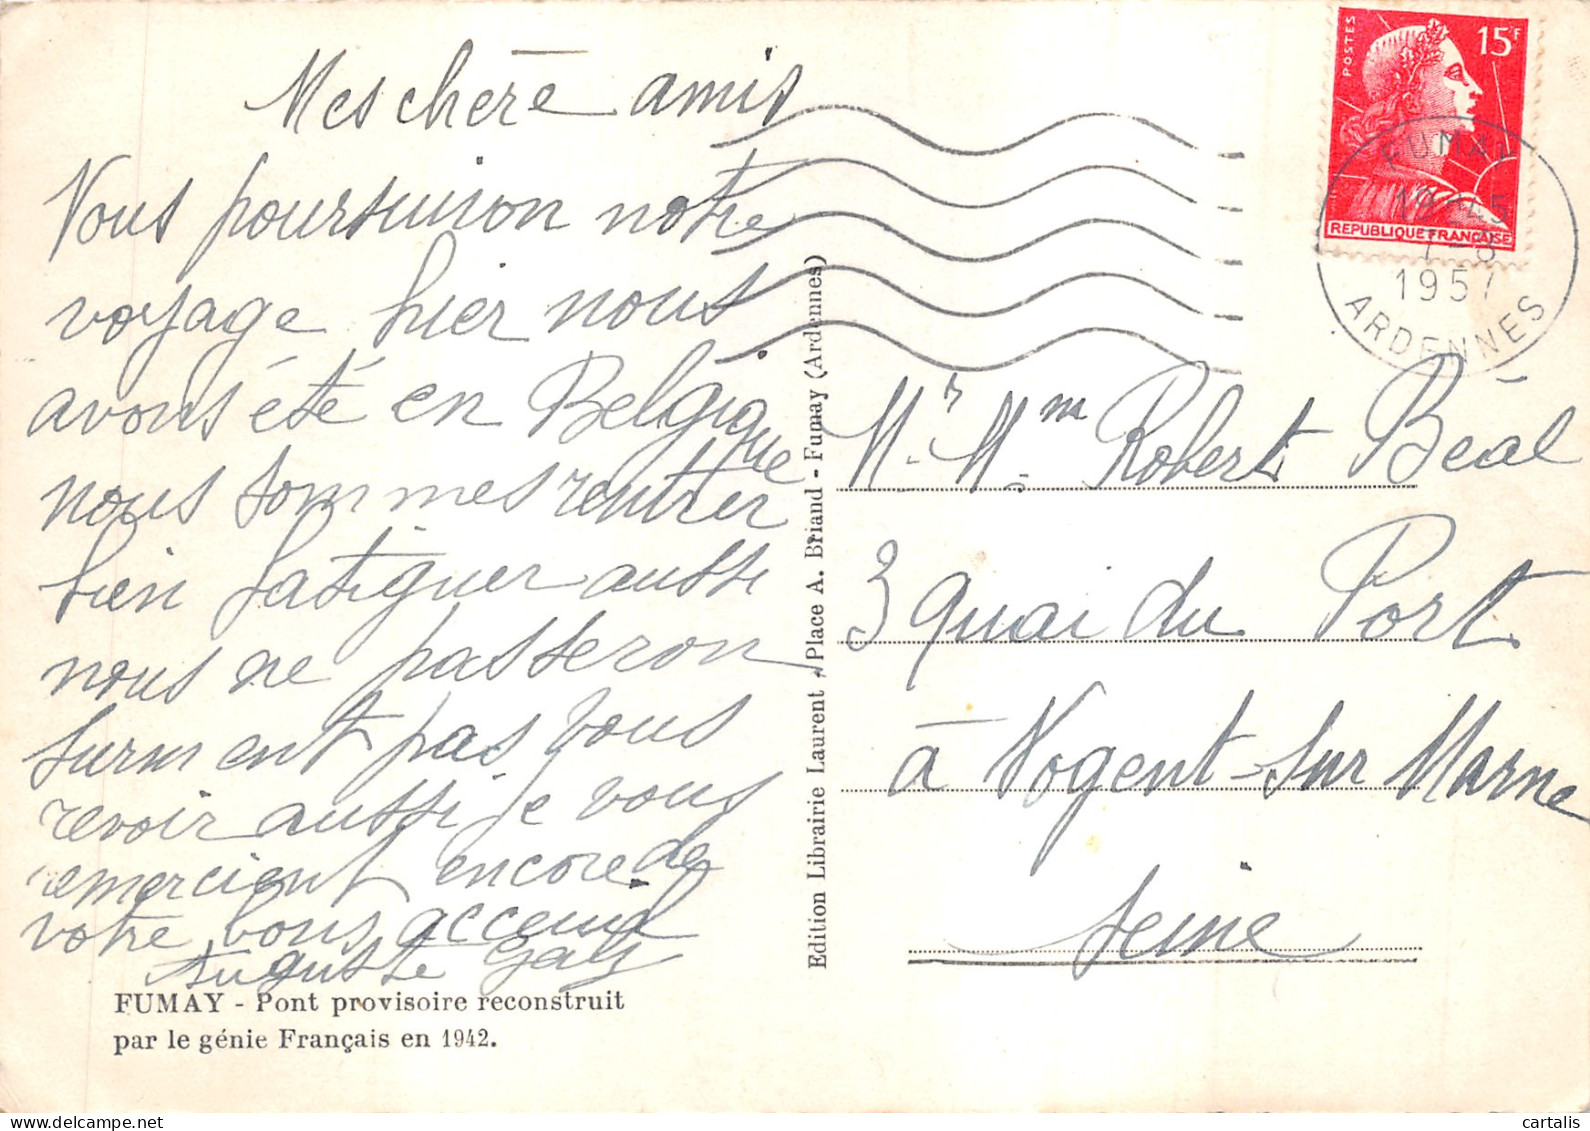 Mes chère amis
Nous poursuison notre
voyage hier nous
avons été en Belgique
nous sommes rentrer
bien fatiguer aussi
nous ne passeron
surment pas vous
revoir aussi je vous
remercient encore de
votre bons acceuil
Auguste
FUMAY - Pont provisoire reconstruit
par le génie Français en 1942.
Edition Librairie Laurent, Place A. Briand - Fumay (Ardennes)
POSTES
15F
REPUBLIQUE FRANÇAISE
FUMAY
1957
ARDENNES
Mr. Mm. Robert Béal
3 quai du Port
à Nogent-sur Marne
Seine
cartalis